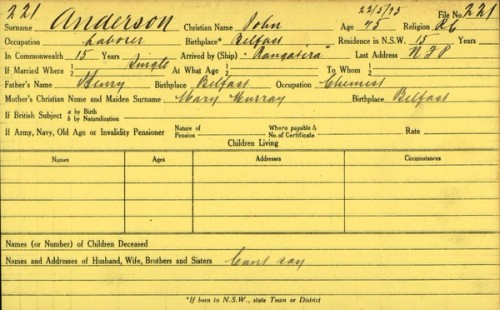 221 22/5/95 File No. 221
Surname Anderson Christian Name John Age 45 Religion RC
Occupation Laborer Birthplace* Belfast Residence in N.S.W. 15 Years
In Commonwealth 15 Years Arrived by (Ship) "Rangatira" Last Address NFP
If Married Where 1 2 Single At What Age 1 2 To Whom 1 2
Father's Name Henry Birthplace Belfast Occupation Chemist
Mother's Christian Name and Maiden Surname Mary Murray Birthplace Belfast
If British Subject a by Birth b by Naturalization
If Army, Navy, Old Age or Invalidity Pensioner Nature of Pension Where payable & No. of Certificate Rate
Children Living
Names Ages Addresses Circumstances
Names (or Number) of Children Deceased
Names and Addresses of Husband, Wife, Brothers and Sisters Cant say
*If born in N.S.W., state Town or District